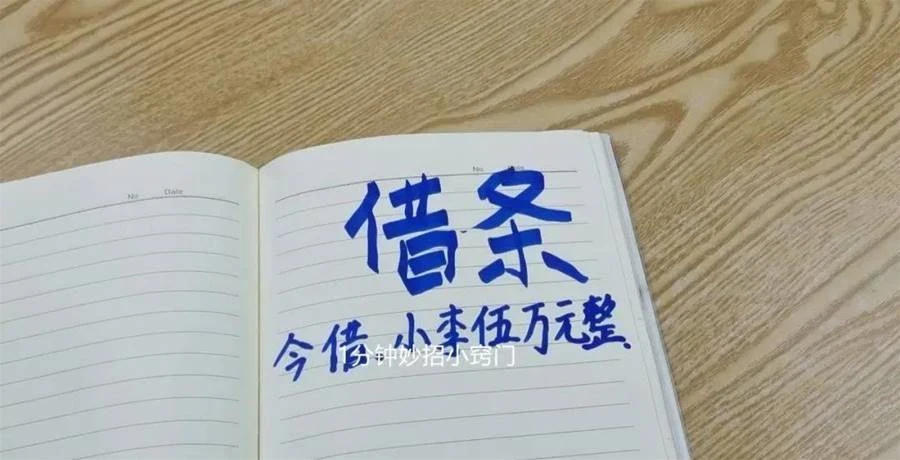 No Date
No Date
借条
今借.小李伍万元整.
1分钟妙招小窍门